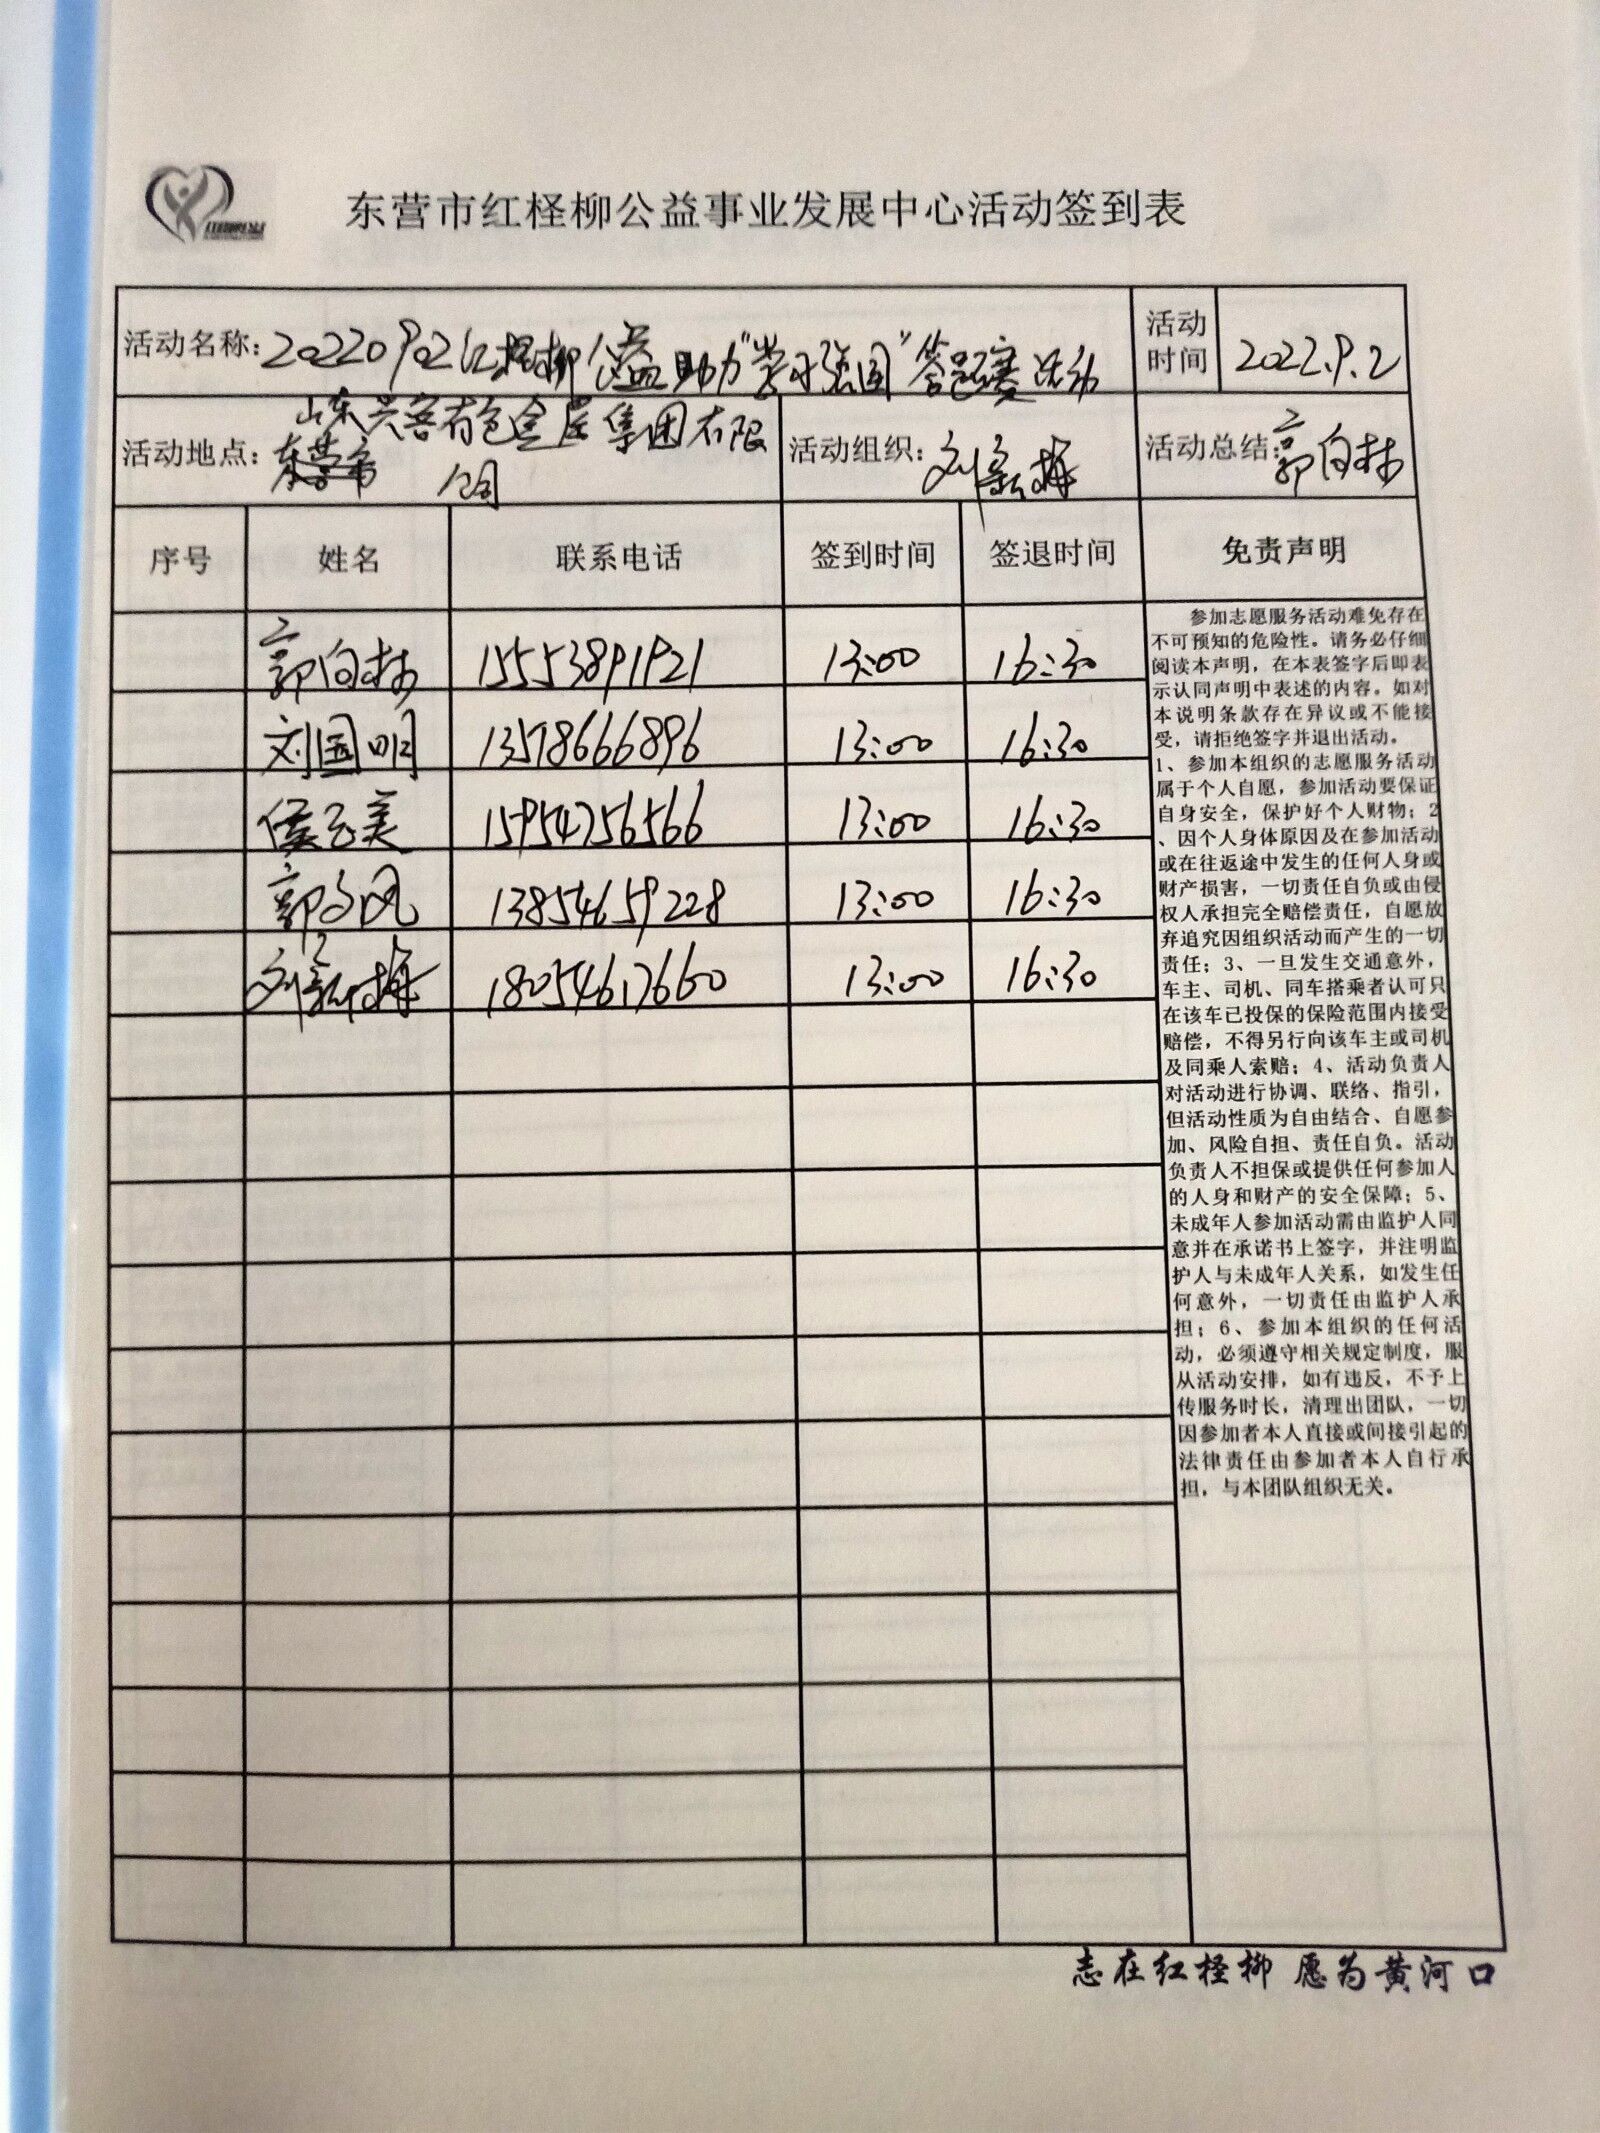 东营市红柽柳公益事业发展中心活动签到表
活动名称：20220902红柽柳公益助力“学习强国”答题赛活动
活动时间 2022.9.2
活动地点：山东兴客有色金属集团有限公司
活动组织：刘新梅
活动总结：郭向林
序号 姓名 联系电话 签到时间 签退时间 免责声明
郭向林 15553891921 13:00 16:30
刘国明 13578666896 13:00 16:30
侯云美 15954756566 13:00 16:30
13854659228 13:00 16:30
刘新梅 18054617660 13:00 16:30
参加志愿服务活动难免存在
不可预知的危险性。请务必仔细
阅读本声明，在本表签字后即表
示认同声明中表述的内容。如对
本说明条款存在异议或不能接
受，请拒绝签字并退出活动。
1、参加本组织的志愿服务活动
属于个人自愿，参加活动要保证
自身安全，保护好个人财物；2
、因个人身体原因及在参加活动
或在往返途中发生的任何人身或
财产损害，一切责任自负或由侵
权人承担完全赔偿责任，自愿放
弃追究因组织活动而产生的一切
责任；3、一旦发生交通意外，
车主、司机、同车搭乘者认可只
在该车已投保的保险范围内接受
赔偿，不得另行向该车主或司机
及同乘人索赔；4、活动负责人
对活动进行协调、联络、指引，
但活动性质为自由结合、自愿参
加、风险自担、责任自负。活动
负责人不担保或提供任何参加人
的人身和财产的安全保障；5、
未成年人参加活动需由监护人同
意并在承诺书上签字，并注明监
护人与未成年人关系，如发生任
何意外，一切责任由监护人承
担；6、参加本组织的任何活
动，必须遵守相关规定制度，服
从活动安排，如有违反，不予上
传服务时长，清理出团队，一切
因参加者本人直接或间接引起的
法律责任由参加者本人自行承
担，与本团队组织无关。
志在红柽柳 愿为黄河口